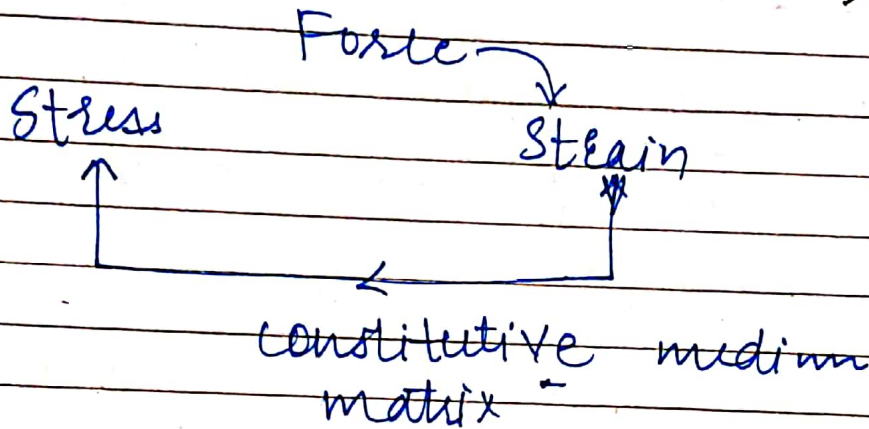 Force
Stress
Strain
constitutive medium
matrix